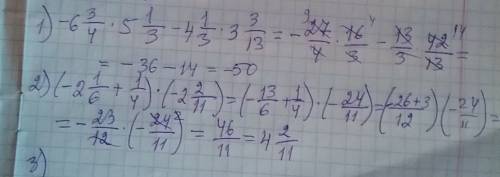 1) -6 3/4 · 5 1/3 - 4 1/3 · 3 3/13 = - 27/4 · 16/3 - 13/3 · 42/13 =
= -36 - 14 = -50
2) (-2 1/6 + 1/4) · (-2 2/11) = (-13/6 + 1/4) · (-24/11) = (-26+3/12) (-24/11) =
= - 23/12 · (-24/11) = 46/11 = 4 2/11
3)